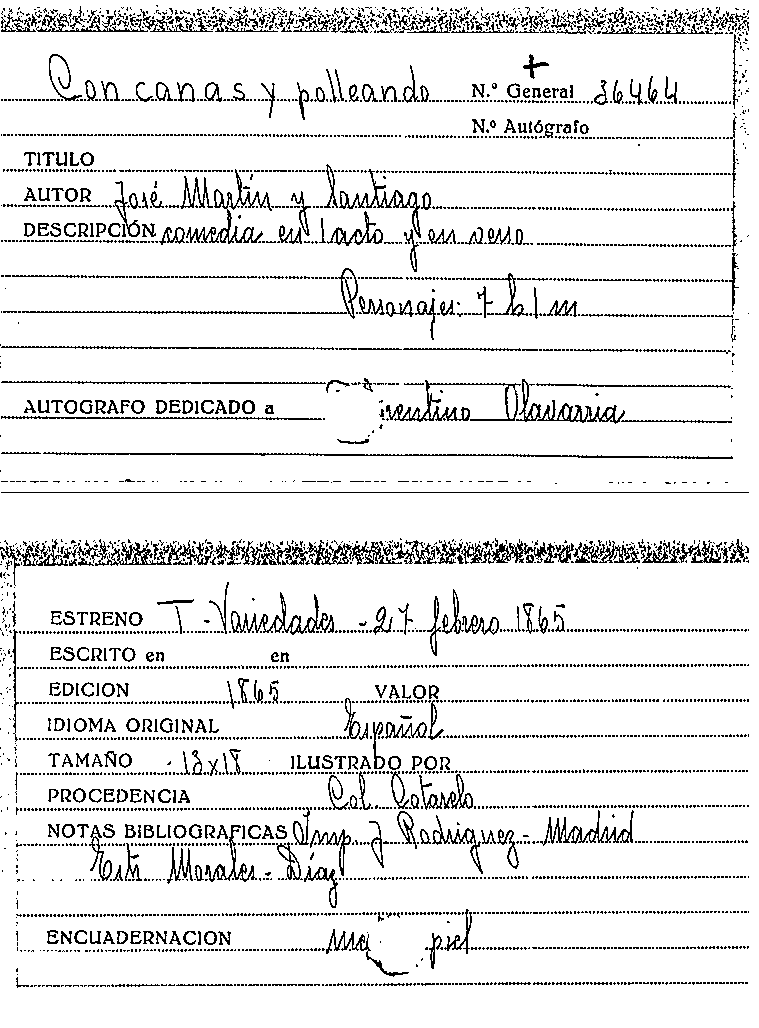 Con canas y polleando N.º General 36464
N.º Autógrafo
TITULO
AUTOR José Martín y Santiago
DESCRIPCIÓN comedia en 1 acto y en verso
Personajes: 7 h 1 m
AUTOGRAFO DEDICADO a rentino Olavarria
ESTRENO T. Variedades - 27 febrero 1865
ESCRITO en en
EDICION 1865 VALOR
IDIOMA ORIGINAL Español
TAMAÑO 13x18 ILUSTRADO POR
PROCEDENCIA Col. Cotarelo
NOTAS BIBLIOGRAFICAS Imp. J. Rodriguez - Madrid
Morales - Díaz
ENCUADERNACION piel